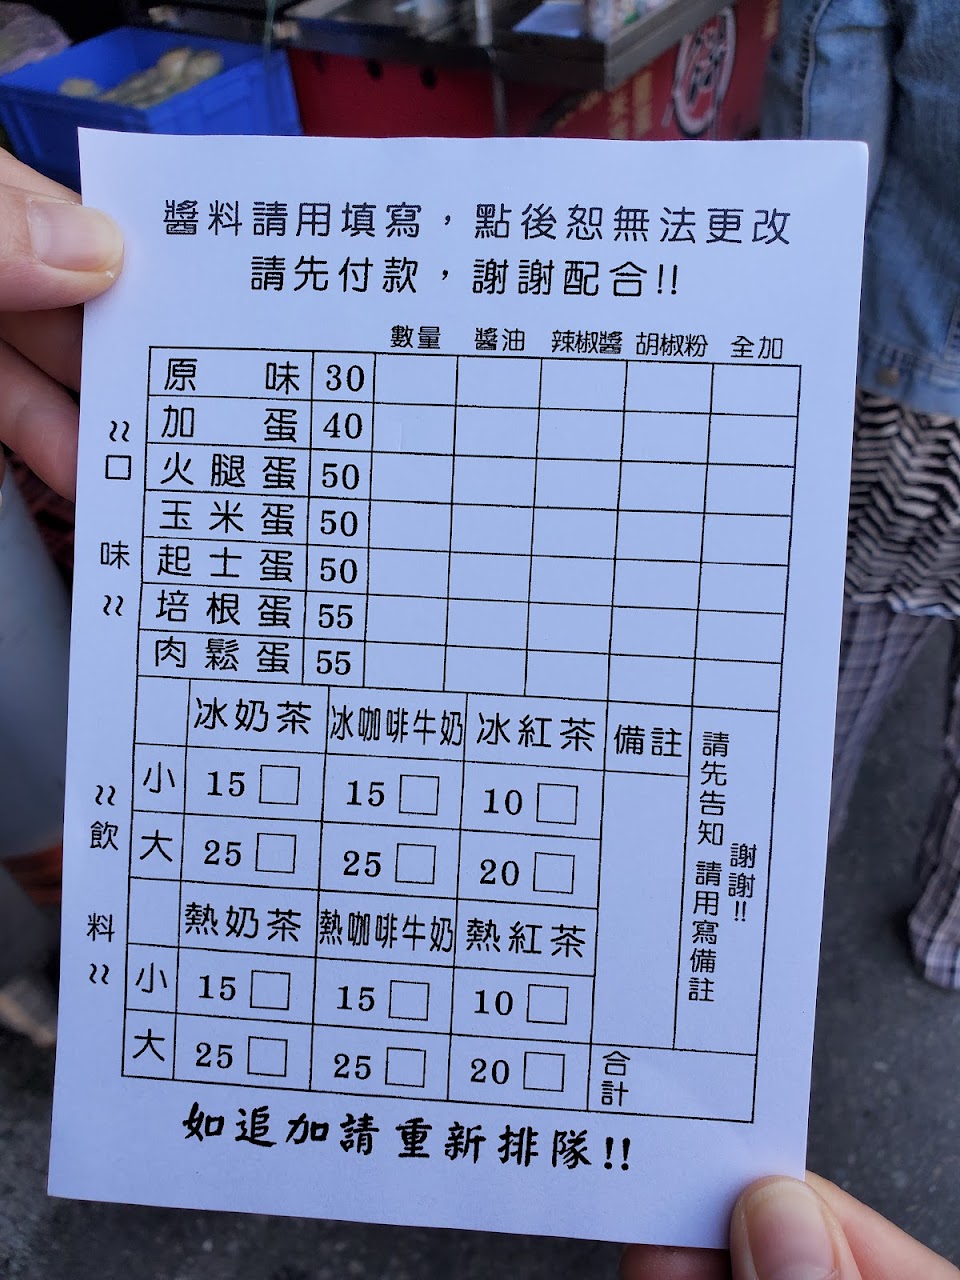 醬料請用填寫，點後恕無法更改
請先付款，謝謝配合!!
數量 醬油 辣椒醬 胡椒粉 全加
~口味~
原味 30
加蛋 40
火腿蛋 50
玉米蛋 50
起士蛋 50
培根蛋 55
肉鬆蛋 55
~飲料~
冰奶茶 冰咖啡牛奶 冰紅茶 備註
小 15 □ 15 □ 10 □
大 25 □ 25 □ 20 □
熱奶茶 熱咖啡牛奶 熱紅茶
小 15 □ 15 □ 10 □
大 25 □ 25 □ 20 □
請先告知 請用寫備註
謝謝!!
合計
如追加請重新排隊!!